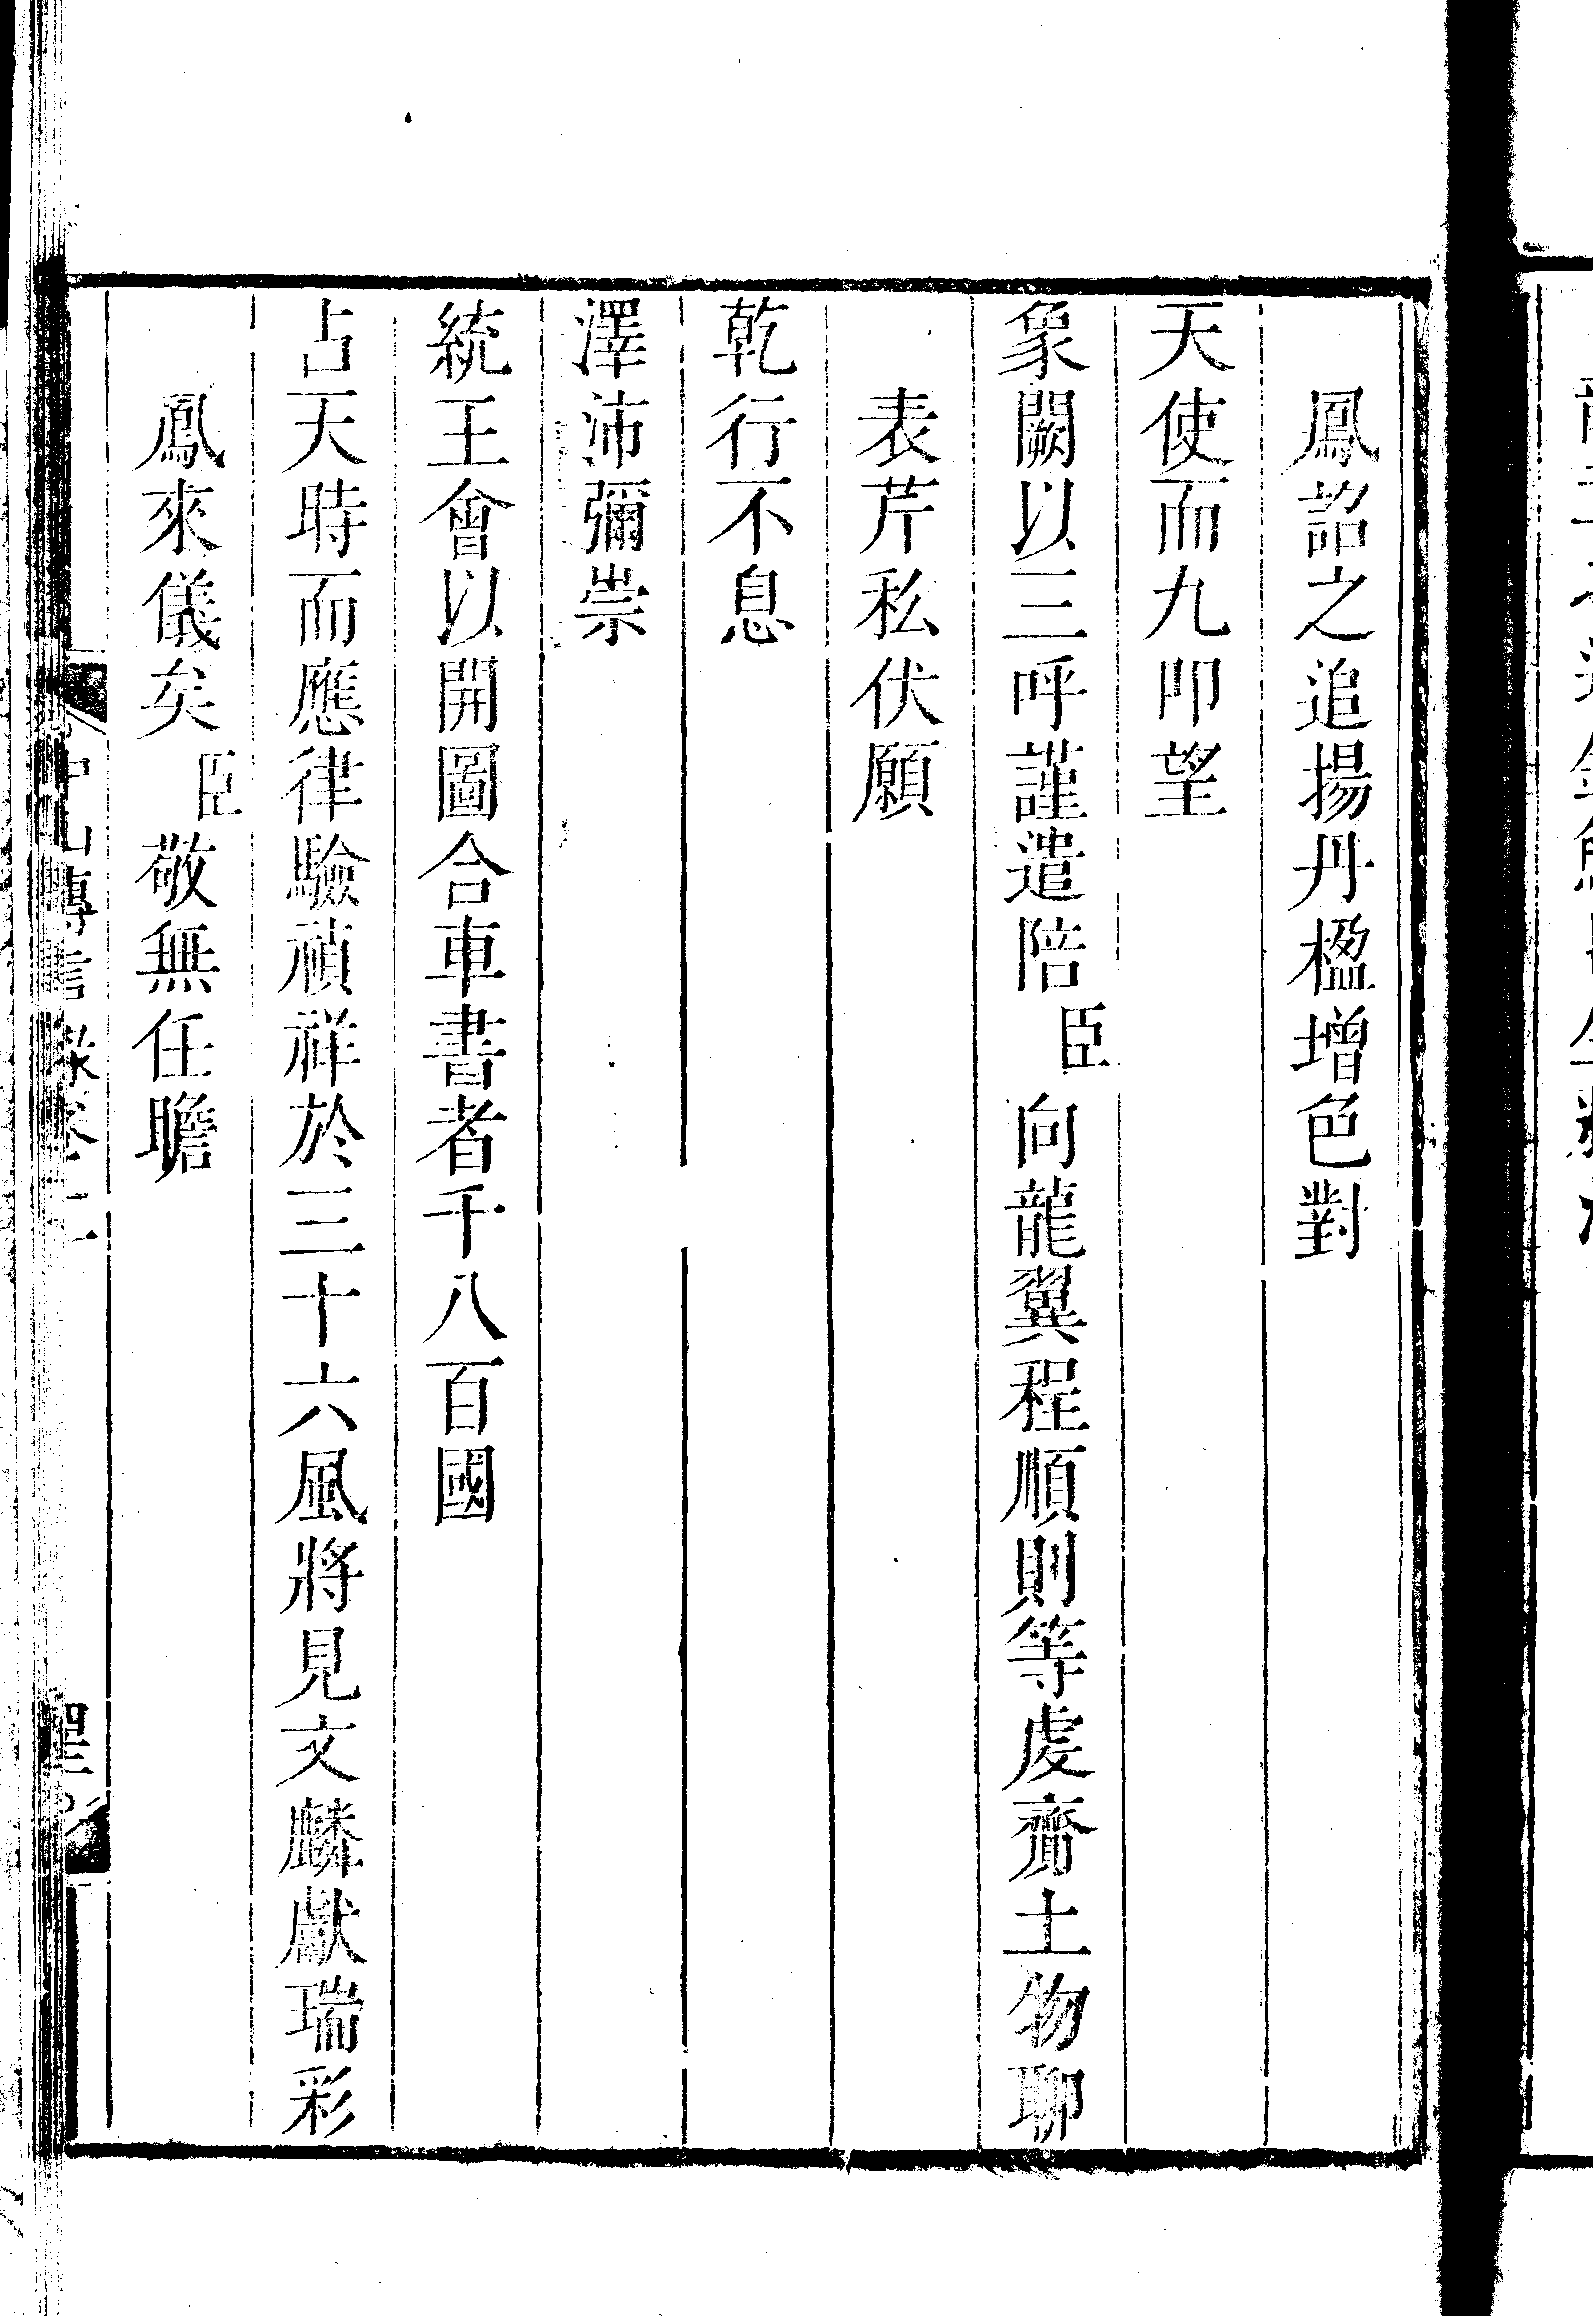 鳳詔之追揚丹楹增色對
天使而九叩望
象闕以三呼謹遣陪臣向龍翼程順則等虔齎土物聊
表芹私伏願
乾行不息
澤沛彌崇
統王會以開圖合車書者千八百國
占天時而應律驗禎祥於三十六風將見文麟獻瑞彩
鳳來儀矣臣敬無任瞻
中山傳信錄卷二